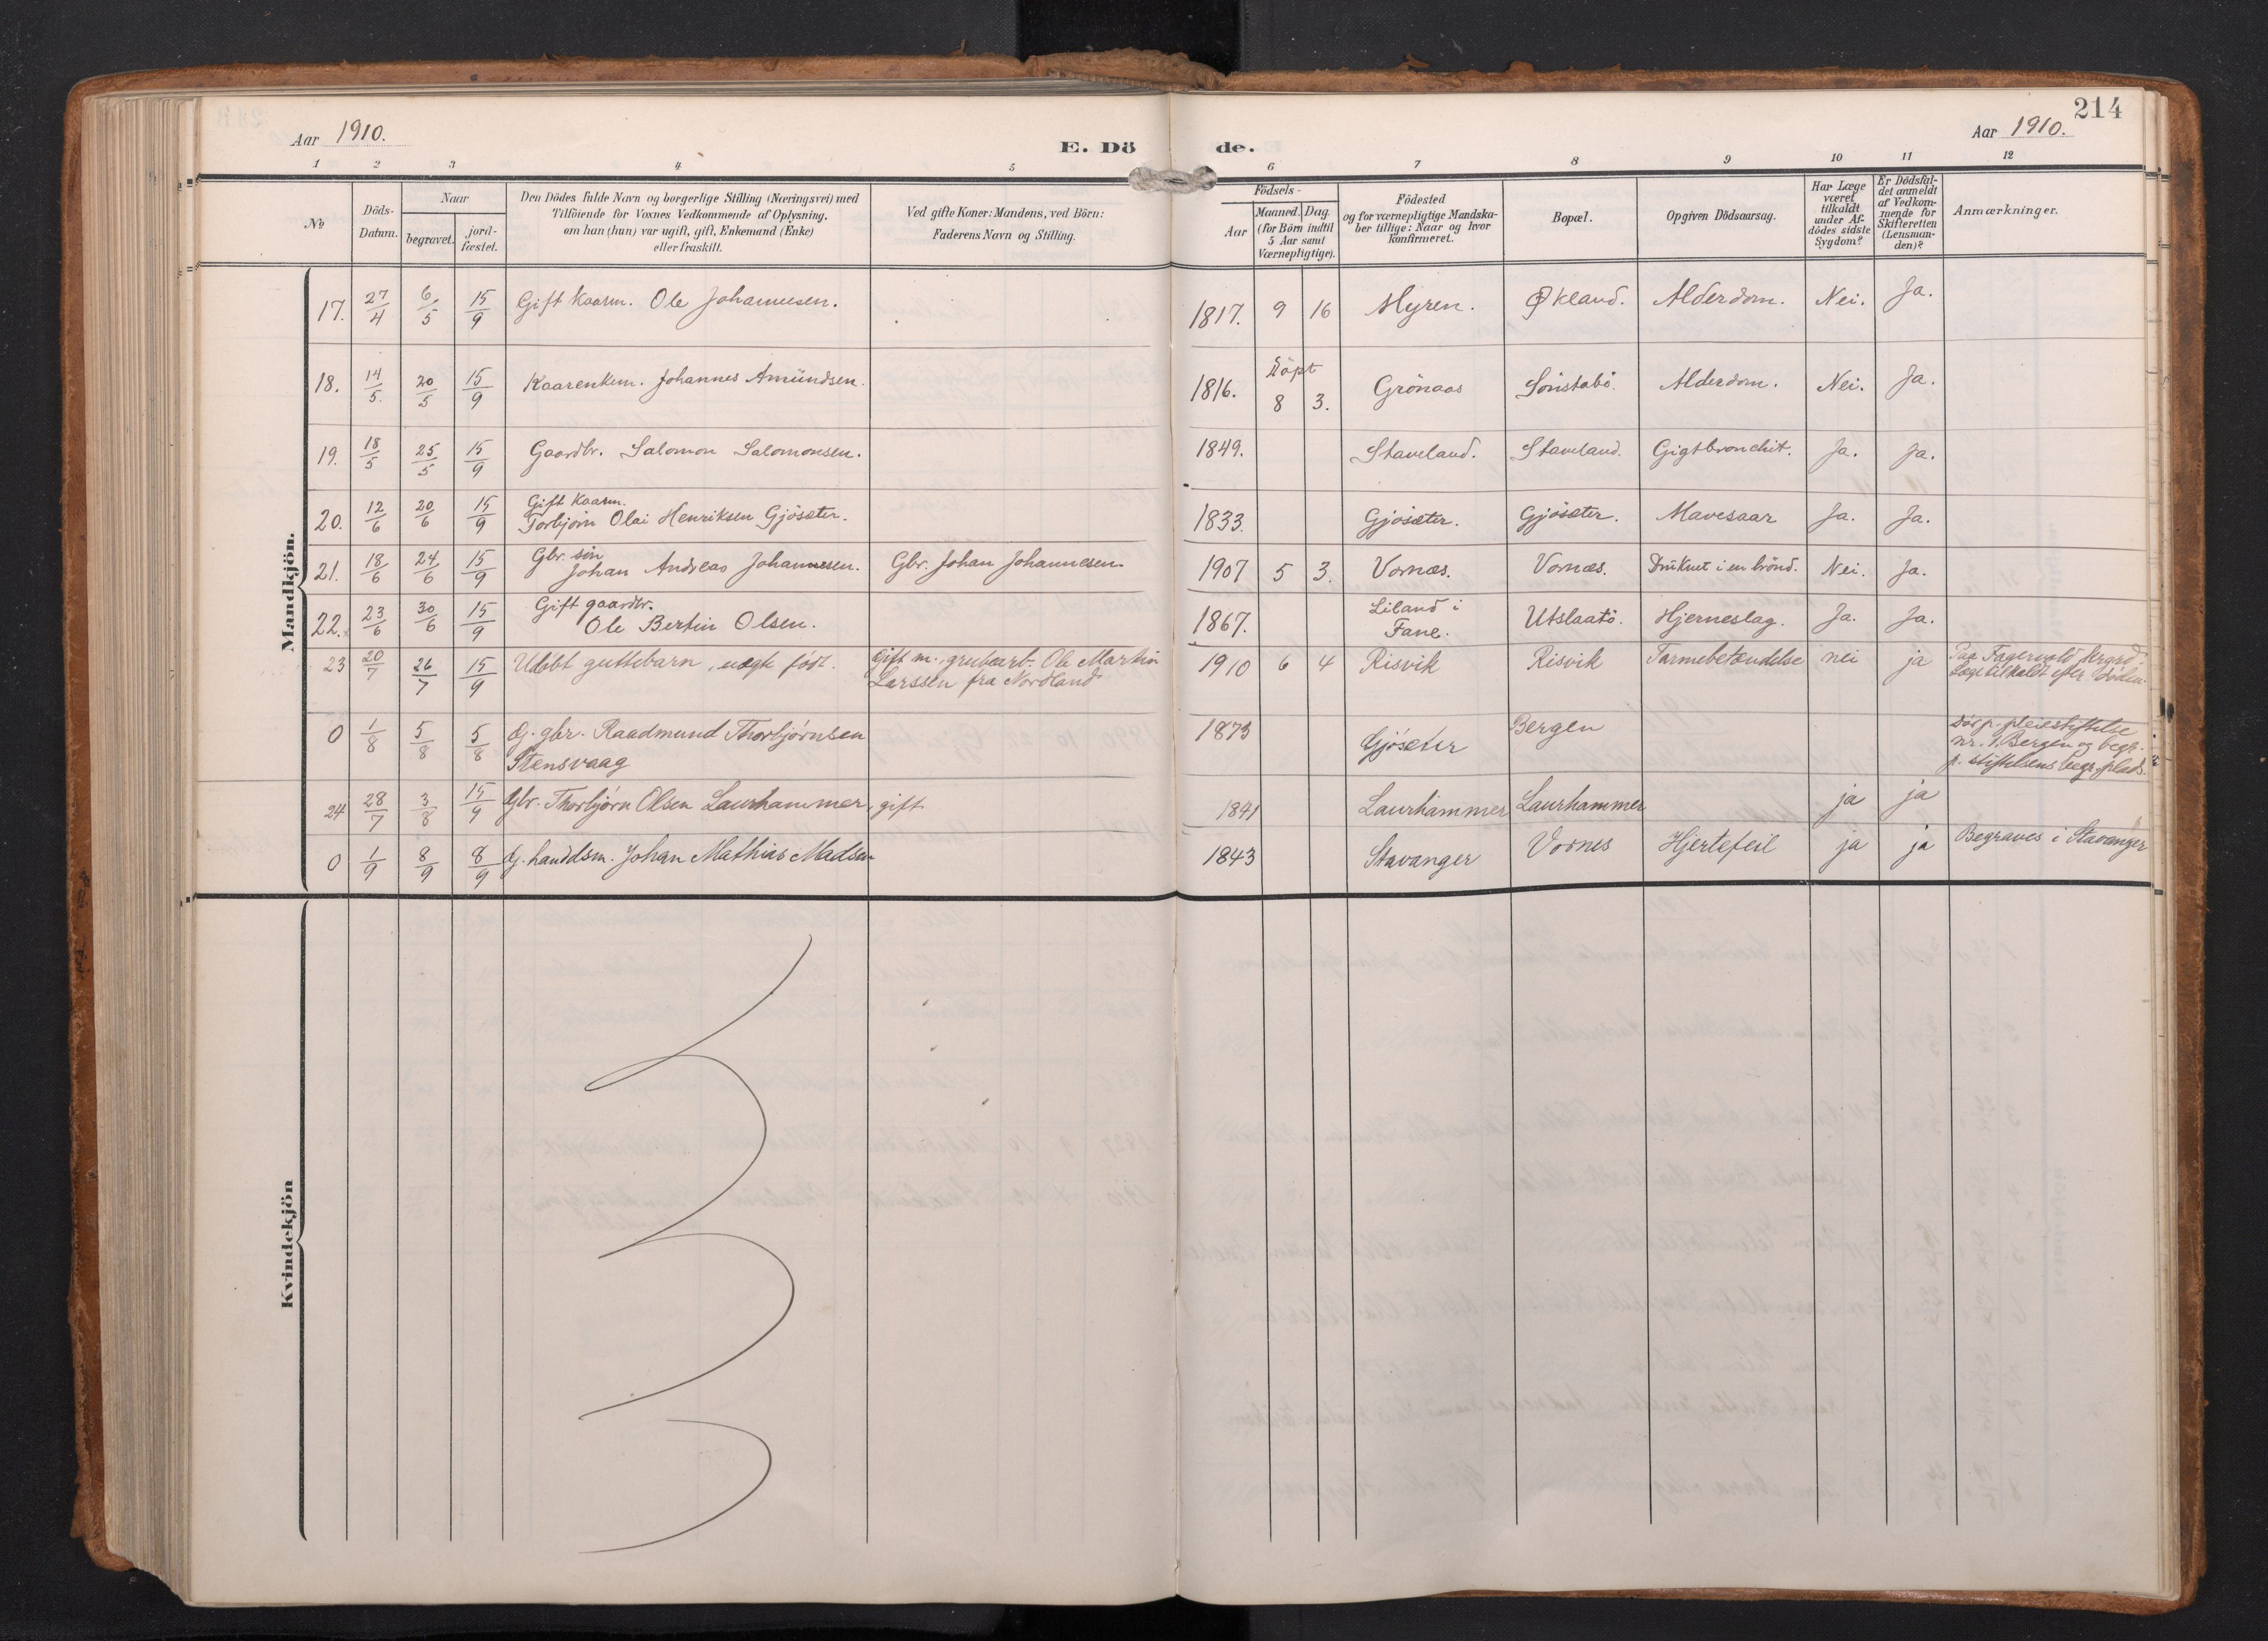 214
Aar 1910.
E. Döde.
Aar 1910.
1 2 3 4 5 6 7 8 9 10 11 12
No
Döds-Datum.
Naar
begravet.
jord-fæstet.
Den Dödes fulde Navn og borgerlige Stilling (Næringsvei) med
Tilföiende for Voxnes Vedkommende af Oplysning,
om han (hun) var ugift, gift, Enkemand (Enke)
eller fraskilt.
Ved gifte Koner: Mandens, ved Börn:
Faderens Navn og Stilling.
Födsels-
Aar
Maaned. Dag
(for Börn indtil
5 Aar samt
Værnepligtige).
Födested
og for værnepligtige Mandska-
ber tillige: Naar og hvor
konfirmeret.
Bopæl.
Opgiven Dödsaarsag.
Har Læge
været
tilkaldt
under Af-
dödes sidste
Sygdom?
Er Dödsfal-
det anmeldt
af Vedkom-
mende for
Skifteretten
(Lensman-
den)?
Anmærkninger.
Mandkjön.
17. 27/4 6/5 15/9 Gift kaarm. Ole Johannesen. 1817. 9 16 Myren. Økland. Alderdom. Nei. Ja.
18. 14/5. 20/5 15/9 Kaarenkem. Johannes Amündsen. 1816. Döpt 8 3. Grönaas Sönstabö. Alderdom. Nei. Ja.
19. 18/5 25/5 15/9 Gaardbr. Salomon Salomonsen. 1849. Staveland. Staveland. Gigtbronchit. Ja. Ja.
20. 12/6 20/6 15/9 Gift kaarm.
Torbjörn Olai Henriksen Gjösæter. 1833. Gjösæter. Gjösæter. Mavesaar Ja. Ja.
21. 18/6 24/6 15/9 Gbr. sön
Johan Andreas Johannesen. Gbr. Johan Johannesen. 1907 5 3. Vornæs. Vornæs. Druknet i en brönd. Nei. Ja.
22. 23/6 30/6 15/9 Gift gaardbr.
Ole Bertin Olsen. 1867. Liland i
Fane. Utslaatö. Hjerneslag. Ja. Ja.
23 20/7 26/7 15/9 Udöbt guttebarn, uægte födt. Gift m., grubearb. Ole Martin
Larssen fra Nordland 1910 6 4 Risvik Risvik Tarmebetændelse nei ja Paa Fagervold krgrd.
Læge tilkaldt efter döden.
0 1/8 5/8 5/8 G. gbr. Raadmund Thorbjørnsen
Stensvaag 1873 Gjøseter Bergen Dör p. pleiestiftelse
nr. 1, Bergen og begr.
p. stiftelsens begr.plads.
24 28/7 3/8 15/9 Gbr. Thorbjørn Olsen Laurhammer, gift 1841 Laurhammer Laurhammer ja ja
0 1/9 8/9 8/9 G. handdsm. Johan Mathias Madsen 1843 Stavanger Vornes Hjertefeil ja ja Begraves i Stavanger
Kvindekjön